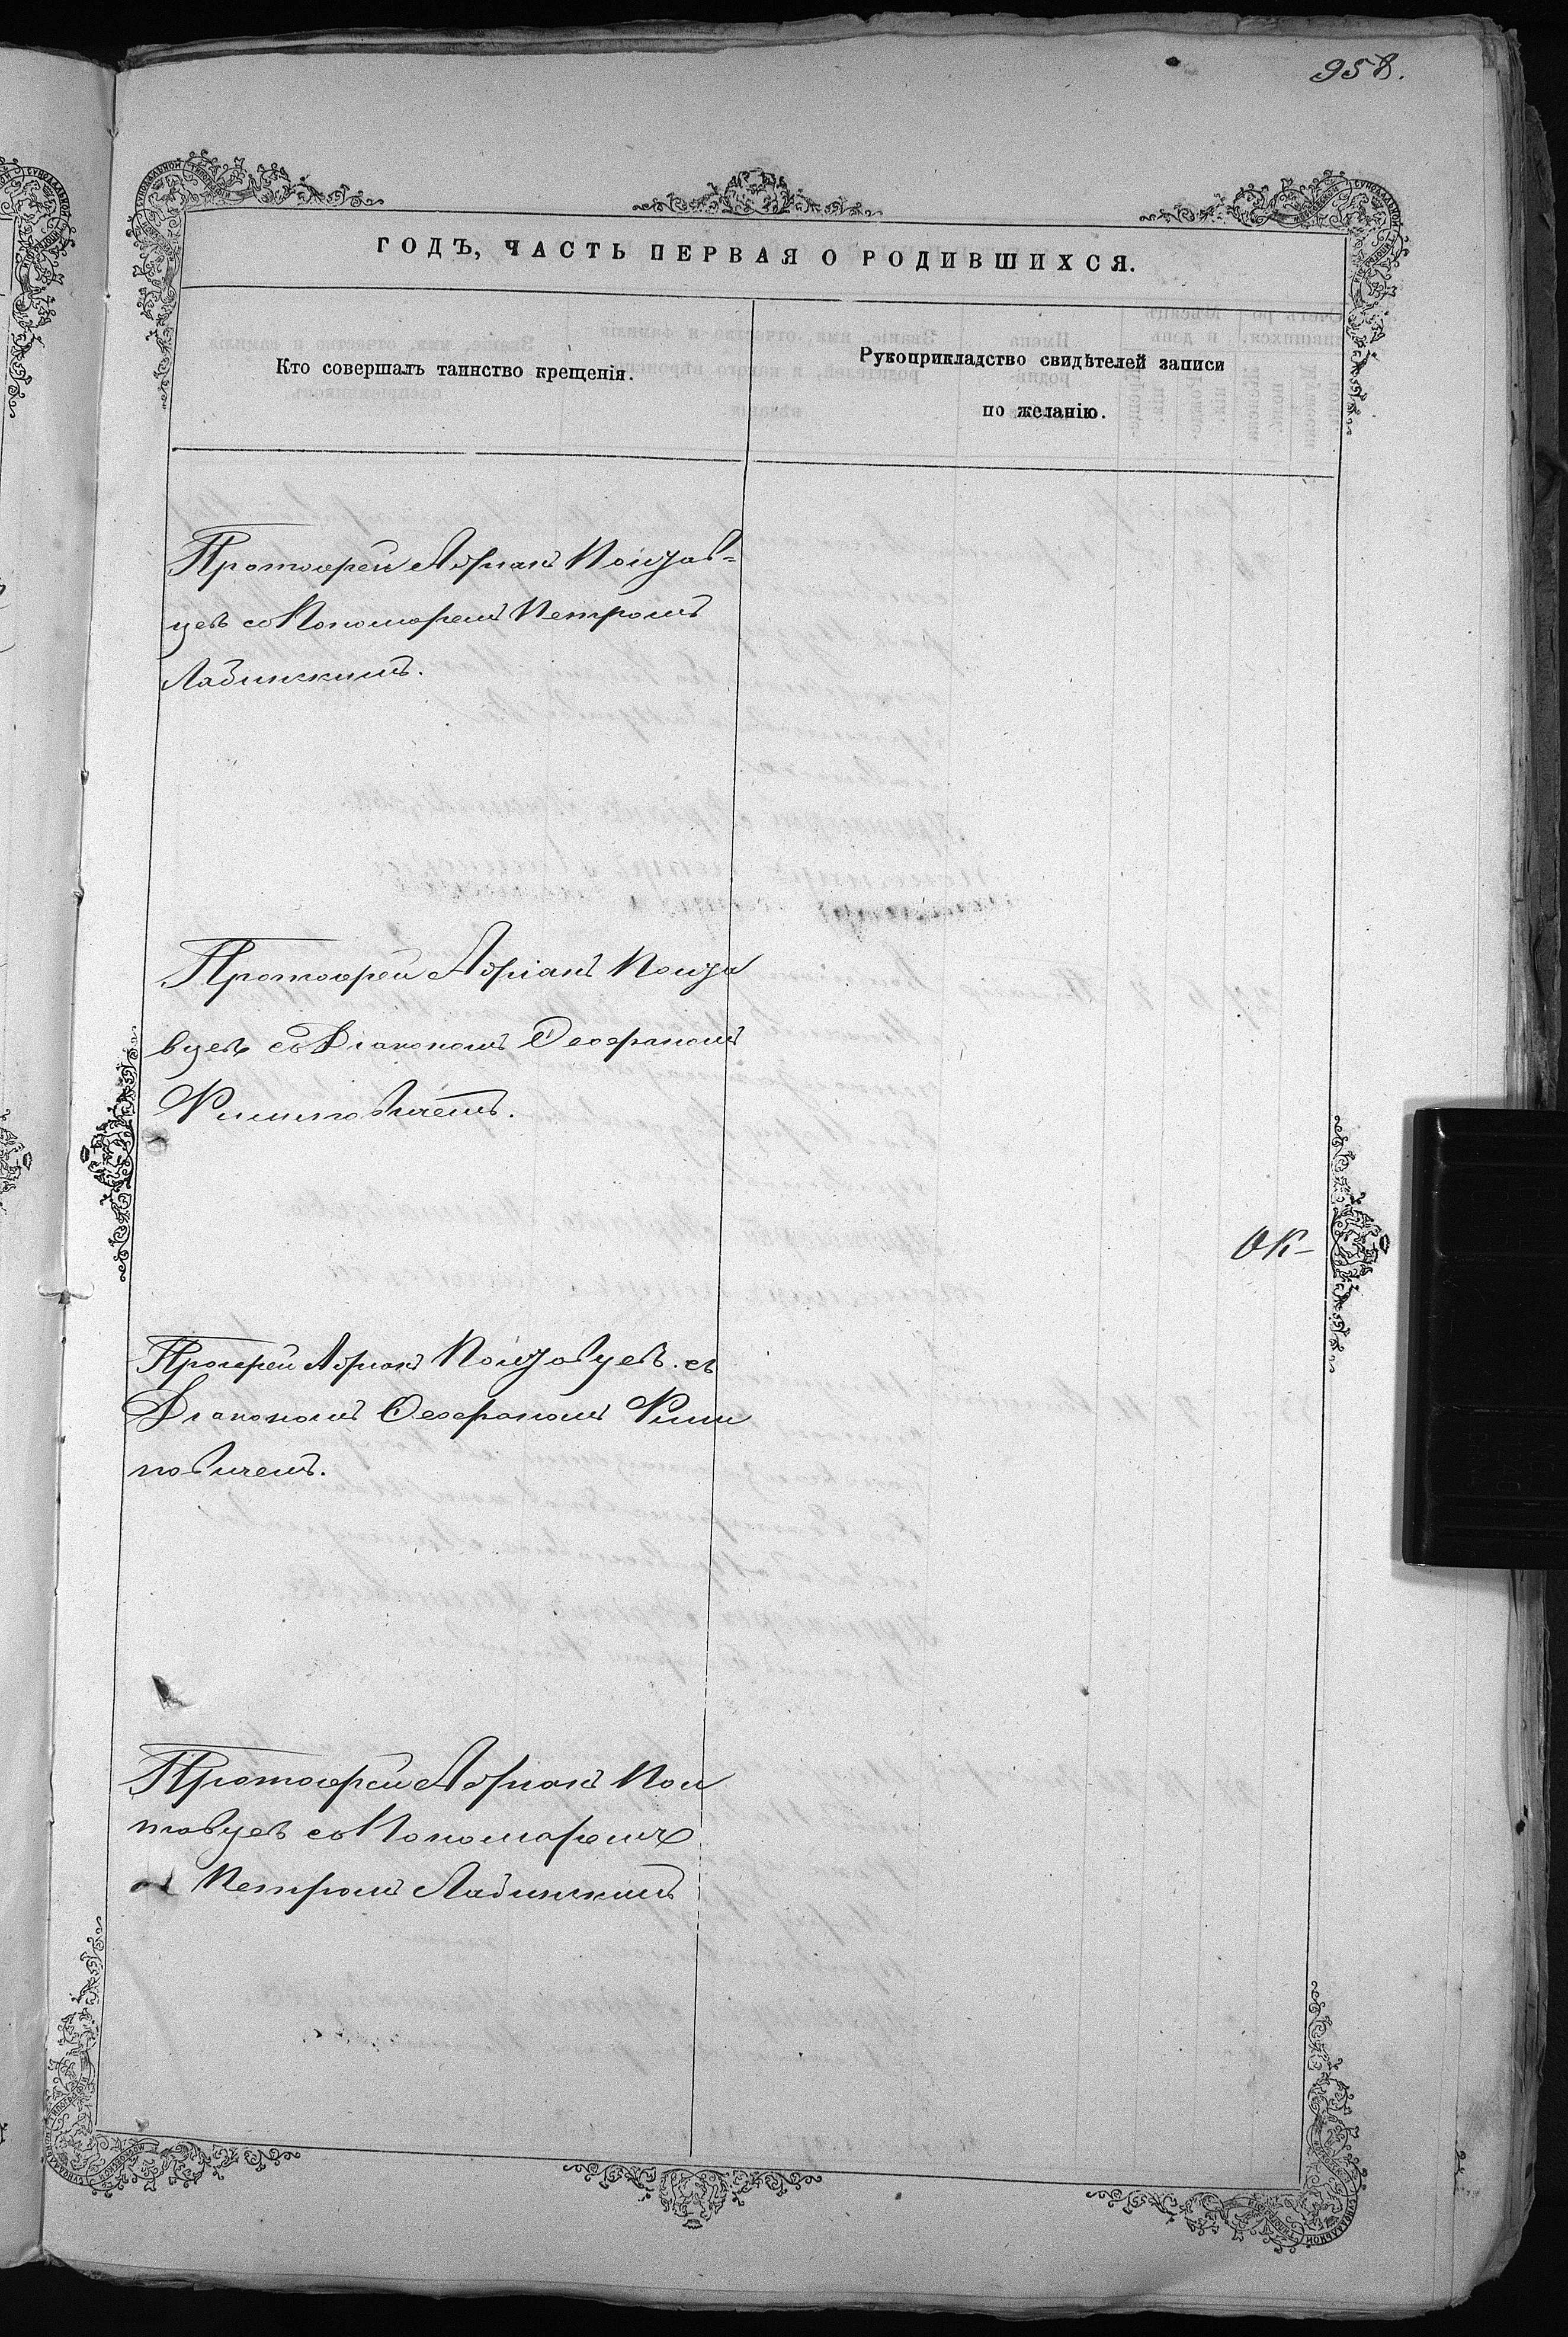 958.
ГОДЪ, ЧАСТЬ ПЕРВАЯ О РОДИВШИХСЯ.
Кто совершалъ таинство крещенія.
Рукоприкладство свидѣтелей записи
по желанію.
Протоіерей Адріанъ Полтав=
цевъ со Пономаремъ Петромъ
Лабинскимъ.
Протоіерей Адріанъ Полта
вцевъ со Діакономъ Ѳеофаномъ
OK-
Адріанъ Полтавцевъ съ
Діакономъ Ѳеофаномъ
Протоіерей Адріанъ Пол
тавцевъ со Пономаремъ
Петромъ Лабинскимъ